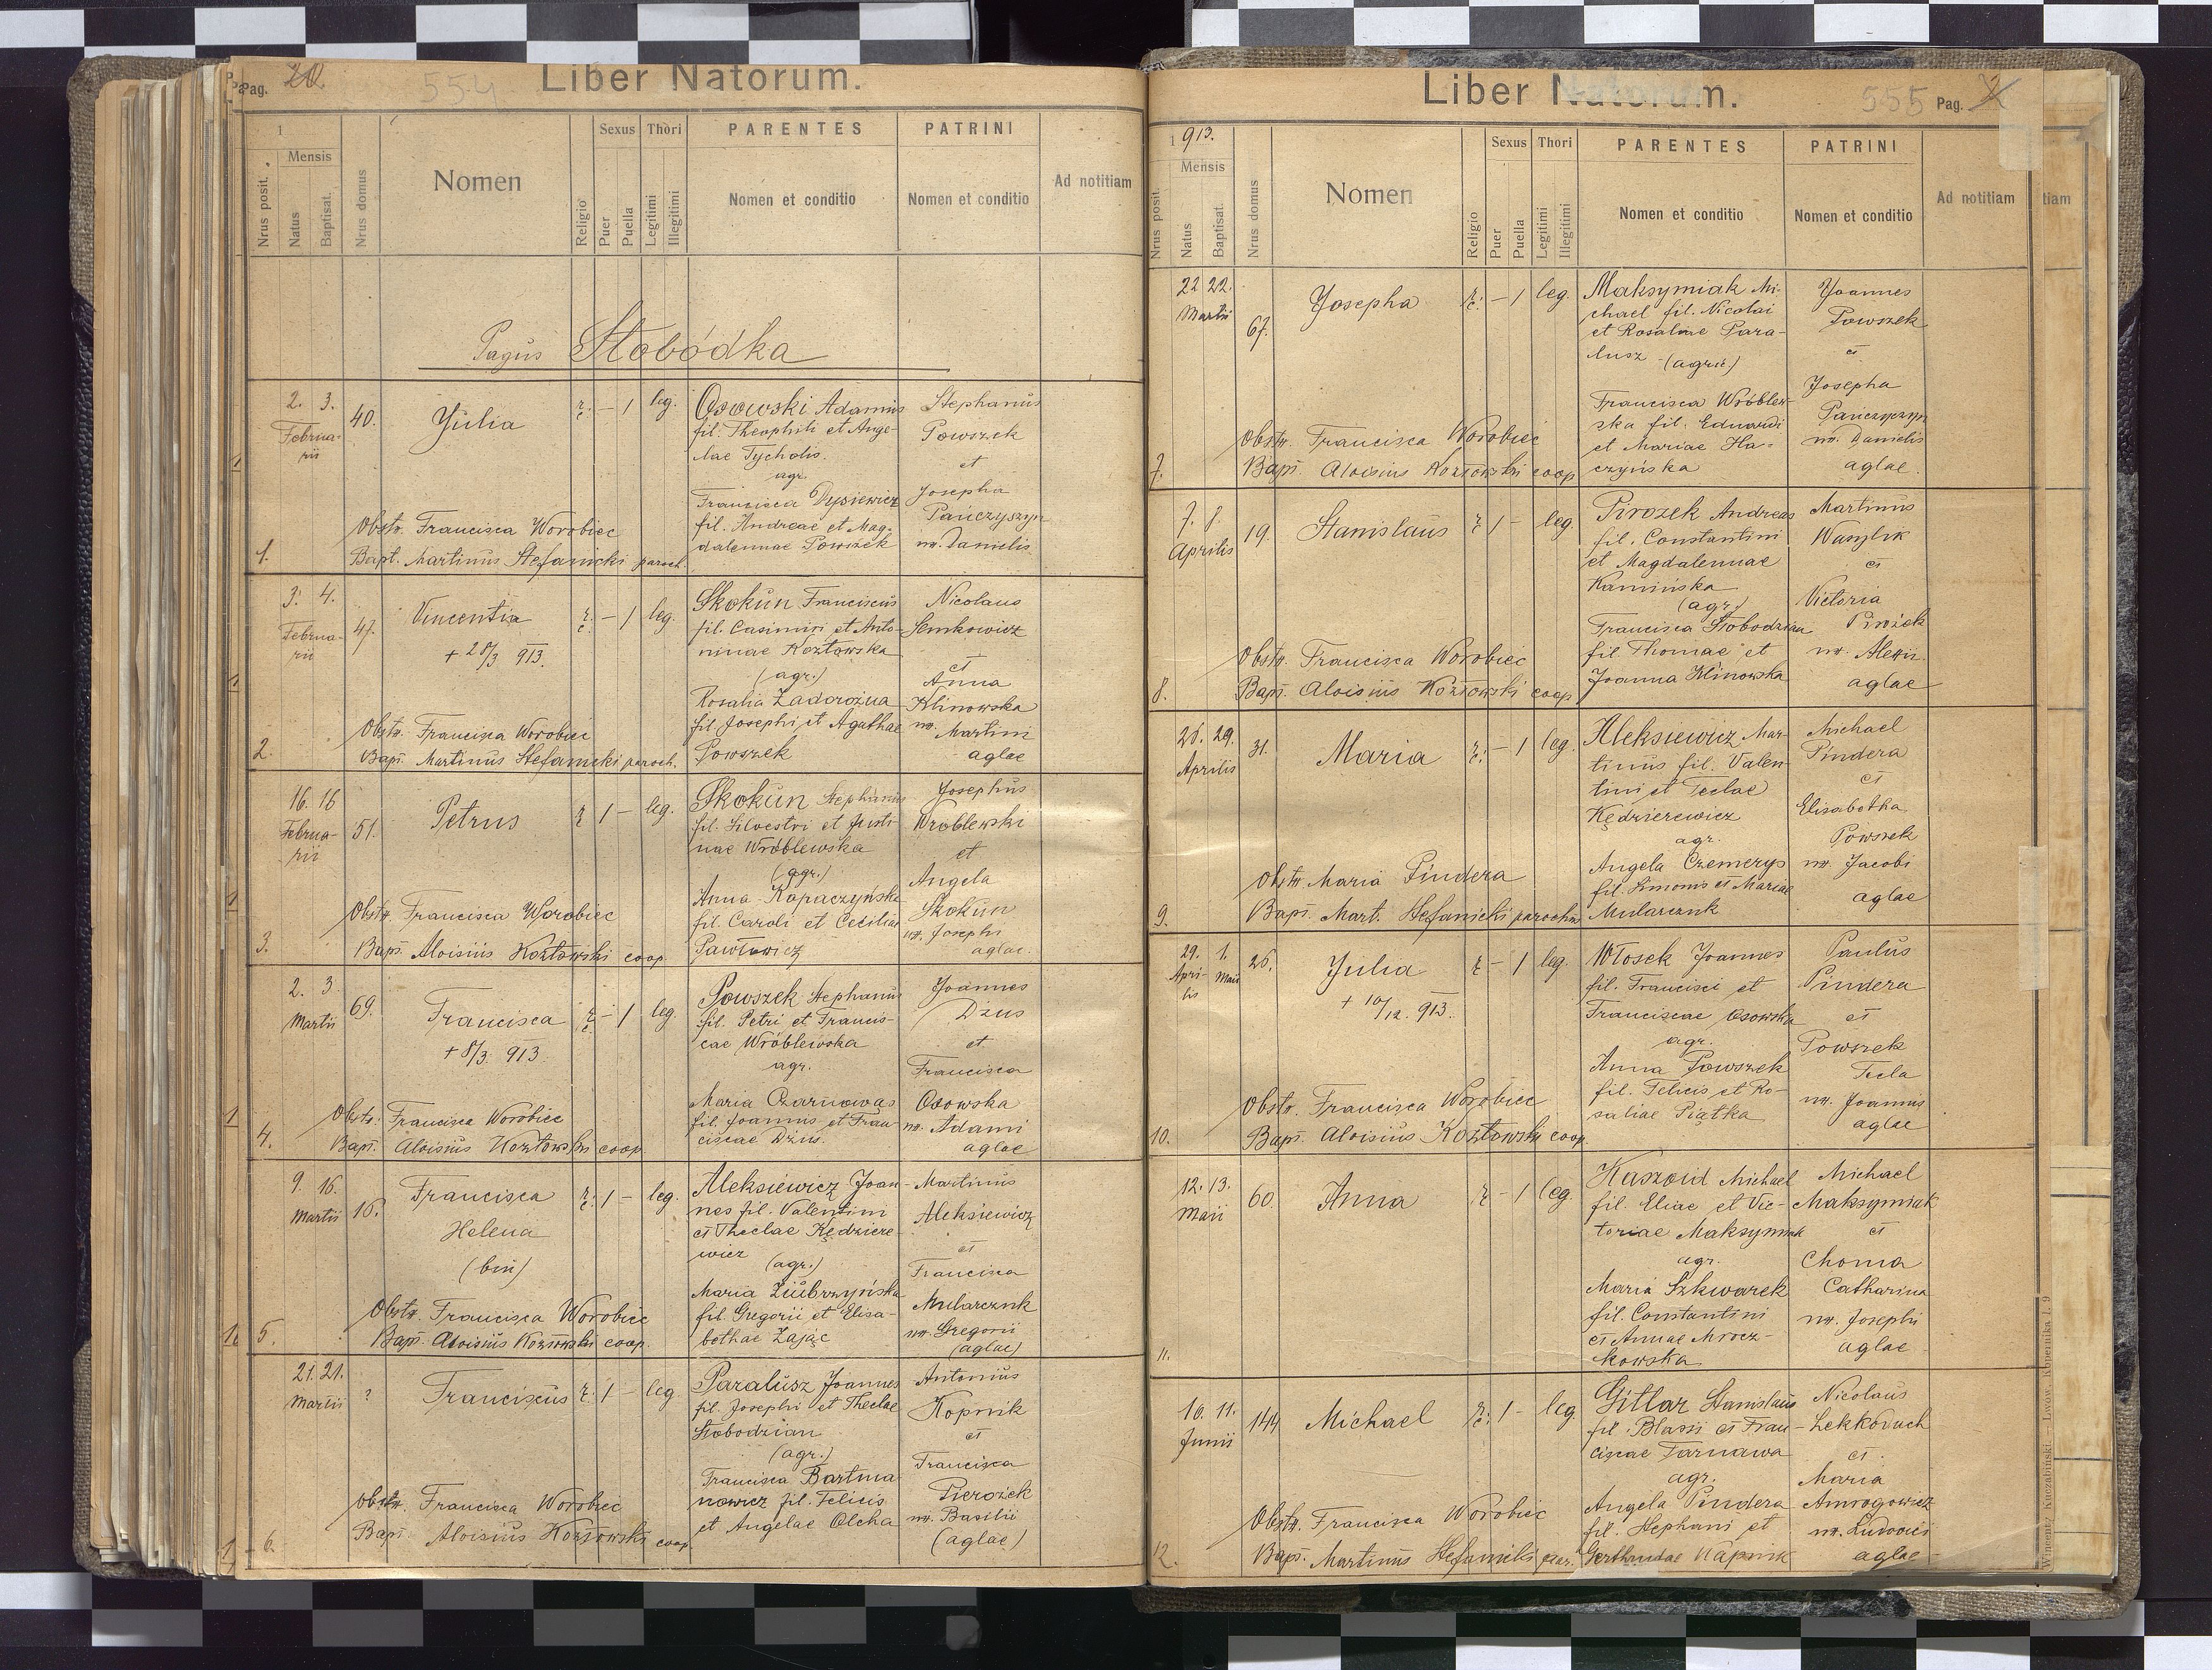 Pag. 20
554
Liber Natorum.
1
Nrus posit.
Mensis
Natus
Baptisat.
Nrus domus
Nomen
Religio
Sexus
Puer
Puella
Thori
Legitimi
Illegitimi
PARENTES
Nomen et conditio
PATRINI
Nomen et conditio
Ad notitiam
Pagus Słobódka
1.
2. 3.
Februa-
rii
40.
Julia
r. c.
– 1
leg.
Osowski Adamus
fil. Theophili et Ange-
lae Tycholis.
agr.
Francisca Dysiewicz
fil. Andreae et Mag-
dalennae Powszek
Stephanus
Powszek
et
Josepha
Pańczyszyn
ux. Danielis
Obstr. Francisca Worobiec
Bapt. Martinus Stefanicki paroch.
2.
3. 4.
Februa-
rii
47.
Vincentia
+ 28/3 913.
r. c.
– 1
leg.
Skokun Franciscus
fil. Casimiri et Anto-
ninae Kozłowska
(agr.)
Rosalia Zadorożna
fil. Josephi et Agathae
Powszek
Nicolaus
Senkowicz
et
Anna
Klinowska
ux. Martini
aglae
Obstr. Francisca Worobiec
Bapt. Martinus Stefanicki paroch.
3.
16. 16
Februa-
rii
51.
Petrus
r. c.
1 –
leg.
Skokun Stephanus
fil. Silvestri et Justi-
nae Wróblewska
(agr.)
Anna Kopaczyńska
fil. Caroli et Ceciliae
Pawłowicz
Josephus
Wróblewski
et
Angela
Skokun
ux. Josephi
aglae.
Obstr. Francisca Worobiec
Bapt. Aloisius Kozłowski coop.
4.
2. 3
Martii
69.
Francisca
+ 8/3 913.
r. c.
– 1
leg.
Powszek Stephanus
fil. Petri et Francis-
cae Wróblewska
agr.
Maria Czarnowas
fil. Joannis et Fran-
ciscae Dżus.
Joannes
Dżus
et
Francisca
Osowska
ux. Adami
aglae
Obstr. Francisca Worobiec
Bapt. Aloisius Kozłowski coop.
5.
9. 16.
Martii
16.
Francisca
Helena
(bin)
r. c.
1 –
leg.
Aleksiewicz Joan-
nes fil. Valentini
et Theclae Kędziere-
wicz
(agr.)
Maria Ziubrzyńska
fil. Gregorii et Elisa-
bethae Zając
Martinus
Aleksiewicz
et
Francisca
Mularczuk
ux. Gregorii
(aglae)
Obstr. Francisca Worobiec
Bapt. Aloisius Kozłowski coop.
6.
21. 21.
Martii
?
Franciscus
r. c.
1 –
leg.
Paralusz Joannes
fil. Josephi et Theclae
Słobodzian
(agr.)
Francisca Bartma-
nowicz fil. Felicis
et Angelae Olcha
Antonius
Kopnik
et
Francisca
Pierożek
ux. Basilii
(aglae)
Obstr. Francisca Worobiec
Bapt. Aloisius Kozłowski coop.
Liber Natorum.
555
Pag.
1913.
Nrus posit.
Mensis
Natus
Baptisat.
Nrus domus
Nomen
Religio
Sexus
Puer
Puella
Thori
Legitimi
Illegitimi
PARENTES
Nomen et conditio
PATRINI
Nomen et conditio
Ad notitiam
tiam
7.
22 22.
Martii
67.
Josepha
r. c.
– 1
leg.
Maksymiak Mi-
chael fil. Nicolai
et Rosaliae Para-
lusz (agric.)
Francisca Wróblew-
ska fil. Eduardi
et Mariae Ha-
czyńska
Joannes
Powszek
et
Josepha
Pańczyszyn
ux. Danielis
aglae.
Obstr. Francisca Worobiec
Bapt. Aloisius Kozłowski coop
8.
7. 8.
Aprilis
19.
Stanislaus
r. c.
1 –
leg
Pirożek Andreas
fil. Constantini
et Magdalennae
Kamińska
(agr.)
Francisca Słobodzian
fil. Thomae et
Joanna Klinowska
Martinus
Wasylik
et
Victoria
Pirożek
ux. Alexii
aglae
Obstr. Francisca Worobiec
Bapt. Aloisius Kozłowski coop
9.
26. 29.
Aprilis
31.
Maria
r. c.
– 1
leg.
Aleksiewicz Mar-
tinus fil. Valen-
tini et Teclae
Kędzierewicz
agr.
Angela Czemerys
fil. Simonis et Mariae
Mularczuk
Michael
Pindera
et
Elisabetha
Powszek
ux. Jacobi
aglae
Obstr. Maria Pindera
Bapt. Mart. Stefanicki parochus
10.
29. 1.
Apri- Maii
lis
26.
Julia
+ 10/12. 913.
r. c.
– 1
leg.
Włosek Joannes
fil. Francisci et
Franciscae Osowska
agr.
Anna Powszek
fil. Felicis et Ro-
saliae Piątka
Paulus
Pindera
et
Powszek
Tecla
ux. Joannis
aglae
Obstr. Francisca Worobiec
Bapt. Aloisius Kozłowski coop.
11.
12. 13.
Maii
60.
Anna
r. c.
– 1
leg.
Kaszoid Michael
fil. Eliae et Vic-
toriae Maksymiak
agr.
Maria Szkwarek
fil. Constantini
et Annae Mrocz-
kowska
Michael
Maksymiak
et
Choma
Catharina
ux. Josephi
aglae
12.
10. 11.
Junii
144
Michael
r. c.
1 –
leg.
Gitlar Stanislaus
fil. Blasii et Fran-
ciscae Tarnawa
agr.
Angela Pindera
fil. Stephani et
Gerthrudae Kapnik
Nicolaus
et
Maria
ux. Ludovici
aglae
Obstr. Francisca Worobiec
Bapt. Martinus Stefanicki par.
Wincenty Kuczabiński. – Lwów, Kopernika l. 9